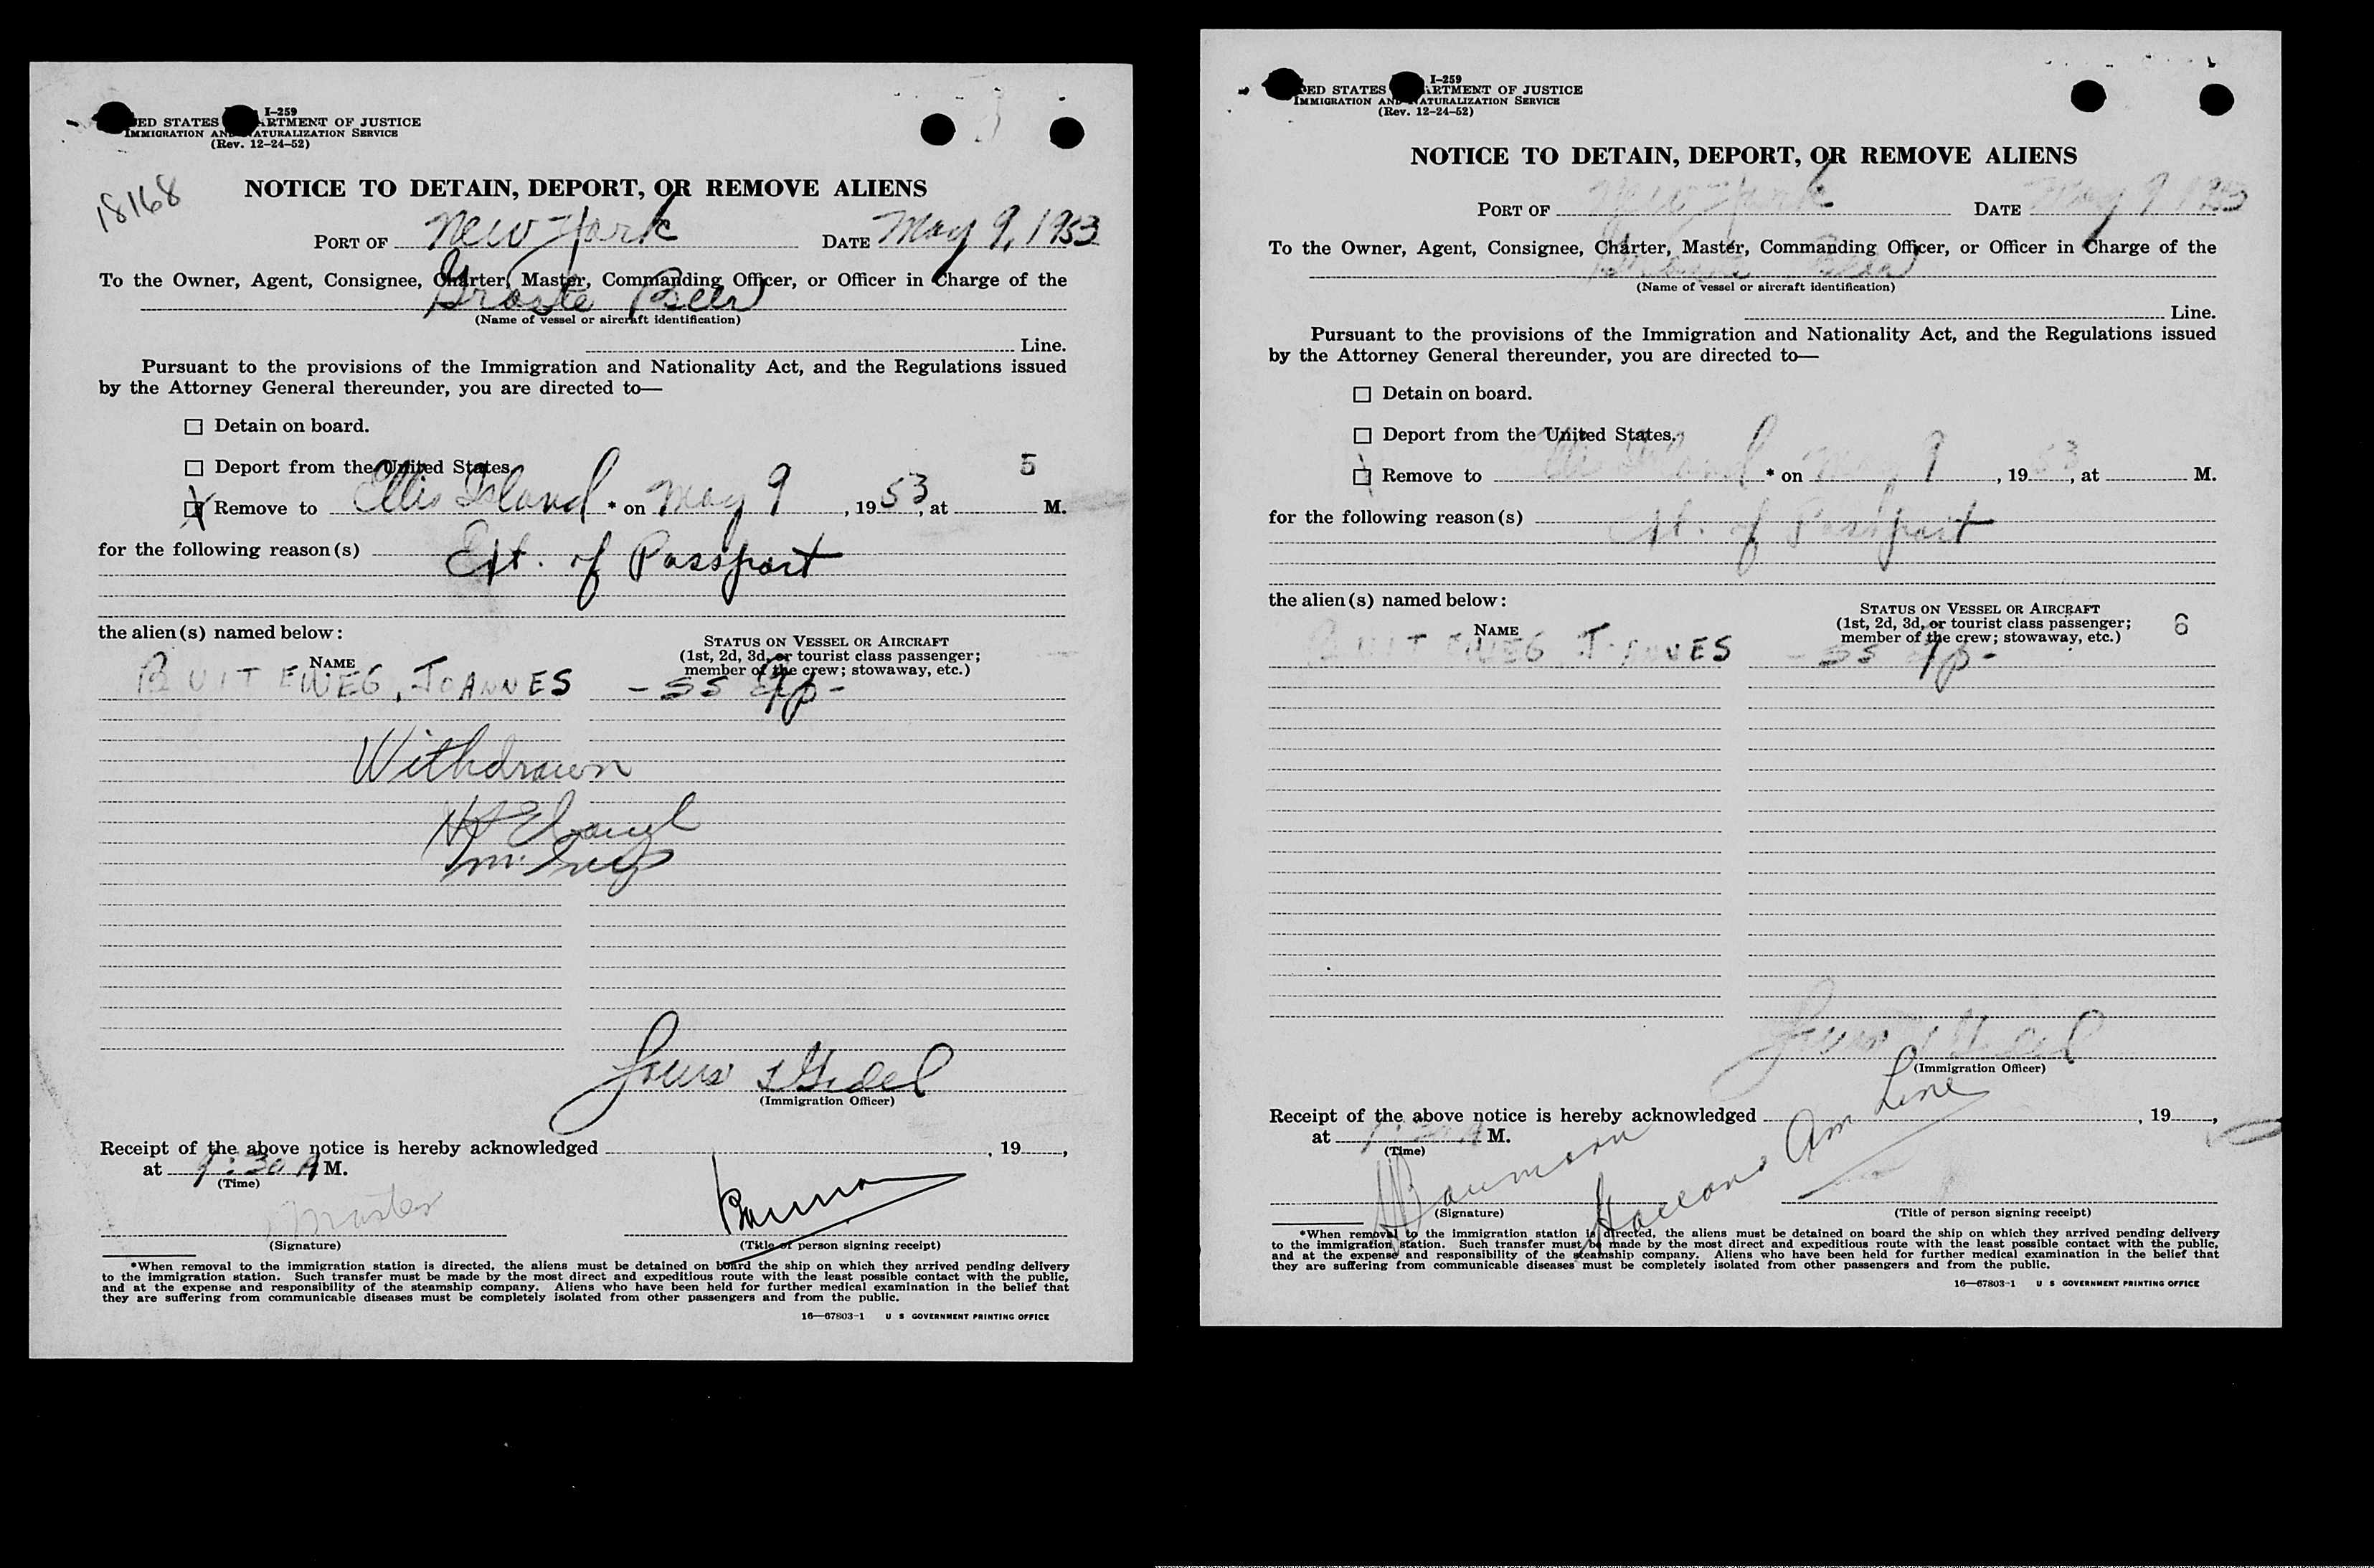 I-259
ED STATES ARTMENT OF JUSTICE
IMMIGRATION AND NATURALIZATION SERVICE
(Rev. 12-24-52)
18168
NOTICE TO DETAIN, DEPORT, OR REMOVE ALIENS
PORT OF New York DATE May 9, 1953
To the Owner, Agent, Consignee, Charter, Master, Commanding Officer, or Officer in Charge of the
Groote Beer
(Name of vessel or aircraft identification)
Line.
Pursuant to the provisions of the Immigration and Nationality Act, and the Regulations issued
by the Attorney General thereunder, you are directed to—
Detain on board.
Deport from the United States.
5
X Remove to Ellis Island * on May 9, 1953, at M.
for the following reason(s)
Ext. of Passport
the alien(s) named below:
NAME
STATUS ON VESSEL OR AIRCRAFT
(1st, 2d, 3d, or tourist class passenger;
member of the crew; stowaway, etc.)
BUITEWEG, JOANNES
Withdrawn
(Immigration Officer)
Receipt of the above notice is hereby acknowledged , 19 ,
at 9:30 A M.
(Time)
Master
(Signature)
(Title of person signing receipt)
*When removal to the immigration station is directed, the aliens must be detained on board the ship on which they arrived pending delivery
to the immigration station. Such transfer must be made by the most direct and expeditious route with the least possible contact with the public,
and at the expense and responsibility of the steamship company. Aliens who have been held for further medical examination in the belief that
they are suffering from communicable diseases must be completely isolated from other passengers and from the public.
16—67803-1 U S GOVERNMENT PRINTING OFFICE
I-259
ED STATES ARTMENT OF JUSTICE
IMMIGRATION AND NATURALIZATION SERVICE
(Rev. 12-24-52)
NOTICE TO DETAIN, DEPORT, OR REMOVE ALIENS
PORT OF New York DATE May 9 1953
To the Owner, Agent, Consignee, Charter, Master, Commanding Officer, or Officer in Charge of the
Groote Beer
(Name of vessel or aircraft identification)
Line.
Pursuant to the provisions of the Immigration and Nationality Act, and the Regulations issued
by the Attorney General thereunder, you are directed to—
Detain on board.
Deport from the United States.
Remove to Ellis Island * on May 9, 1953, at M.
for the following reason(s)
Ext. of Passport
the alien(s) named below:
NAME
STATUS ON VESSEL OR AIRCRAFT
(1st, 2d, 3d, or tourist class passenger;
member of the crew; stowaway, etc.)
6
BUITEWEG JOANNES
(Immigration Officer)
Receipt of the above notice is hereby acknowledged , 19 ,
at 9:30 A M.
(Time)
Baumann Holland Am Line
(Signature)
(Title of person signing receipt)
*When removal to the immigration station is directed, the aliens must be detained on board the ship on which they arrived pending delivery
to the immigration station. Such transfer must be made by the most direct and expeditious route with the least possible contact with the public,
and at the expense and responsibility of the steamship company. Aliens who have been held for further medical examination in the belief that
they are suffering from communicable diseases must be completely isolated from other passengers and from the public.
16—67803-1 U S GOVERNMENT PRINTING OFFICE